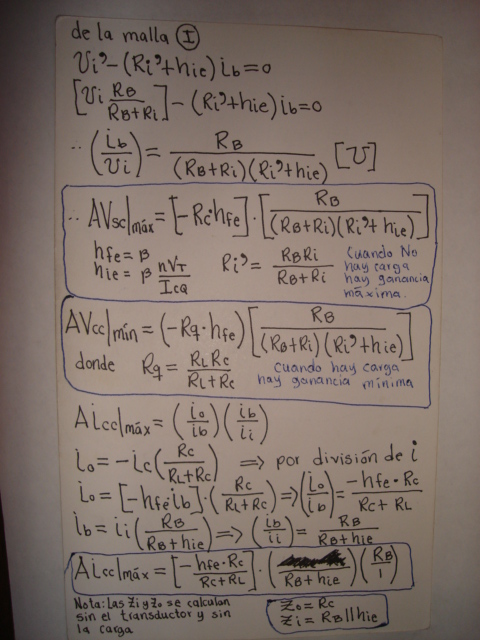 de la malla I
Vi' - (Ri' + hie) ib = 0
[Vi RB/(RB+Ri)] - (Ri' + hie) ib = 0
∴ (ib/Vi) = RB/((RB+Ri)(Ri'+hie)) [℧]
∴ AVsc|máx = [-Rc·hfe]·[RB/((RB+Ri)(Ri'+hie))]
hfe = β
hie = β nVT/ICQ
Ri' = RBRi/(RB+Ri)
Cuando No
hay carga
hay ganancia
máxima.
AVcc|mín = (-Rq·hfe)[RB/((RB+Ri)(Ri'+hie))]
donde Rq = RLRc/(RL+Rc)
Cuando hay carga
hay ganancia mínima
Aicc|máx = (io/ib)(ib/ii)
io = -ic(Rc/(RL+Rc)) ⇒ por división de i
io = [-hfe·ib]·(Rc/(RL+Rc)) ⇒ (io/ib) = -hfe·Rc/(Rc+RL)
ib = ii(RB/(RB+hie)) ⇒ (ib/ii) = RB/(RB+hie)
Aicc|máx = [-hfe·Rc/(Rc+RL)]·( /(RB+hie))(RB/1)
Nota: Las Zi y Zo se calculan
sin el transductor y sin
la carga
Zo = Rc
Zi = RB||hie